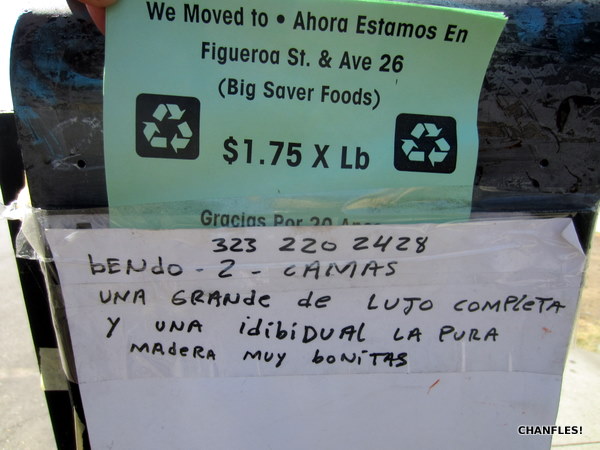 We Moved to • Ahora Estamos En
Figueroa St. & Ave 26
(Big Saver Foods)
$1.75 X Lb
Gracias Por 20
323 220 2428
bENdo - 2 - CAMAS
UNA GRANde de LUJO COMPLETA
Y UNA idibiDUAL LA PURA
MADERA MUY boNiTAS
CHANFLES!